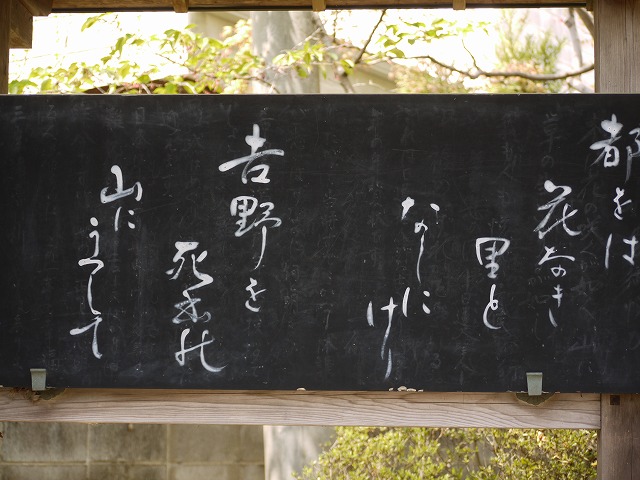 都をは
花なき
里と
なしに
けり
吉野を
死出の
山に
うつして